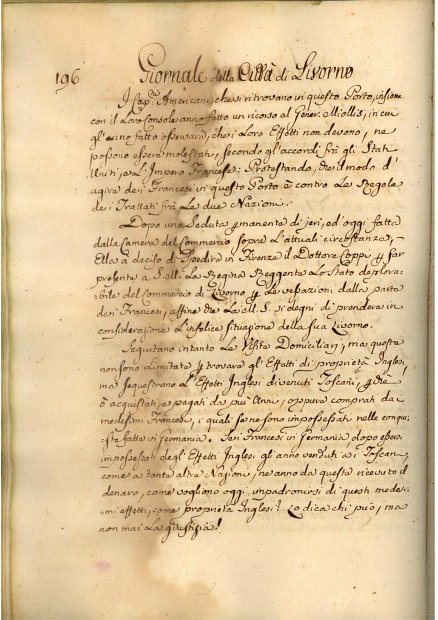 196
Giornale della Città di Livorno
I Cap.ⁿⁱ Americani, che si ritrovano in questo Porto, insieme
con il Loro Console anno fatto un ricorso al Gener. Miollis, in cui
gl'anno fatto osservare, che i Loro Effetti non devono, ne
possono essere molestati, secondo gl'accordi frà gli Stati
Uniti, e L'Impero Francese: Protestando, che il modo d'
agire dei Francesi in questo Porto è contro Le Regole
dei Trattati frà Le due Nazioni:
Dopo una Seduta permanente di jeri, ed'oggi fatta
dalla Camera del Commercio sopra L'attuali circostanze,
Ella à deciso di spedire in Firenze il Dottore Coppi per far
presente a S. M. La Regina Reggente Lo Stato deplora-
bile del Commercio di Livorno per Le vessazioni dalla parte
dei Francesi, affine che La M. S. si degni di prendere in
considerazione L'infelice situazione della sua Livorno.
Seguitano intanto Le Visite Domiciliarj; ma queste
non sono Limitate per trovare gl'Effetti di proprietà Inglesi,
ma sequestrano L'Effetti Inglesi divenuti Toscani, per che
ò acquistati, e pagati da più Anni, oppure comprati dai
medesimi Francesi, i quali se ne sono impossessati nelle conqui-
ste fatte in Germania. Se i Francesi in Germania dopo essersi
impossessati degl'Effetti Inglesi gl'anno venduti ai Toscani,
come a tante altre Nazioni, ne anno da questi ricevuto il
denaro, come vogliono oggi, impadronirsi di questi mede-
mi effetti, come proprietà Inglesi? Lo dica chi può, ma
non mai La giustizia!